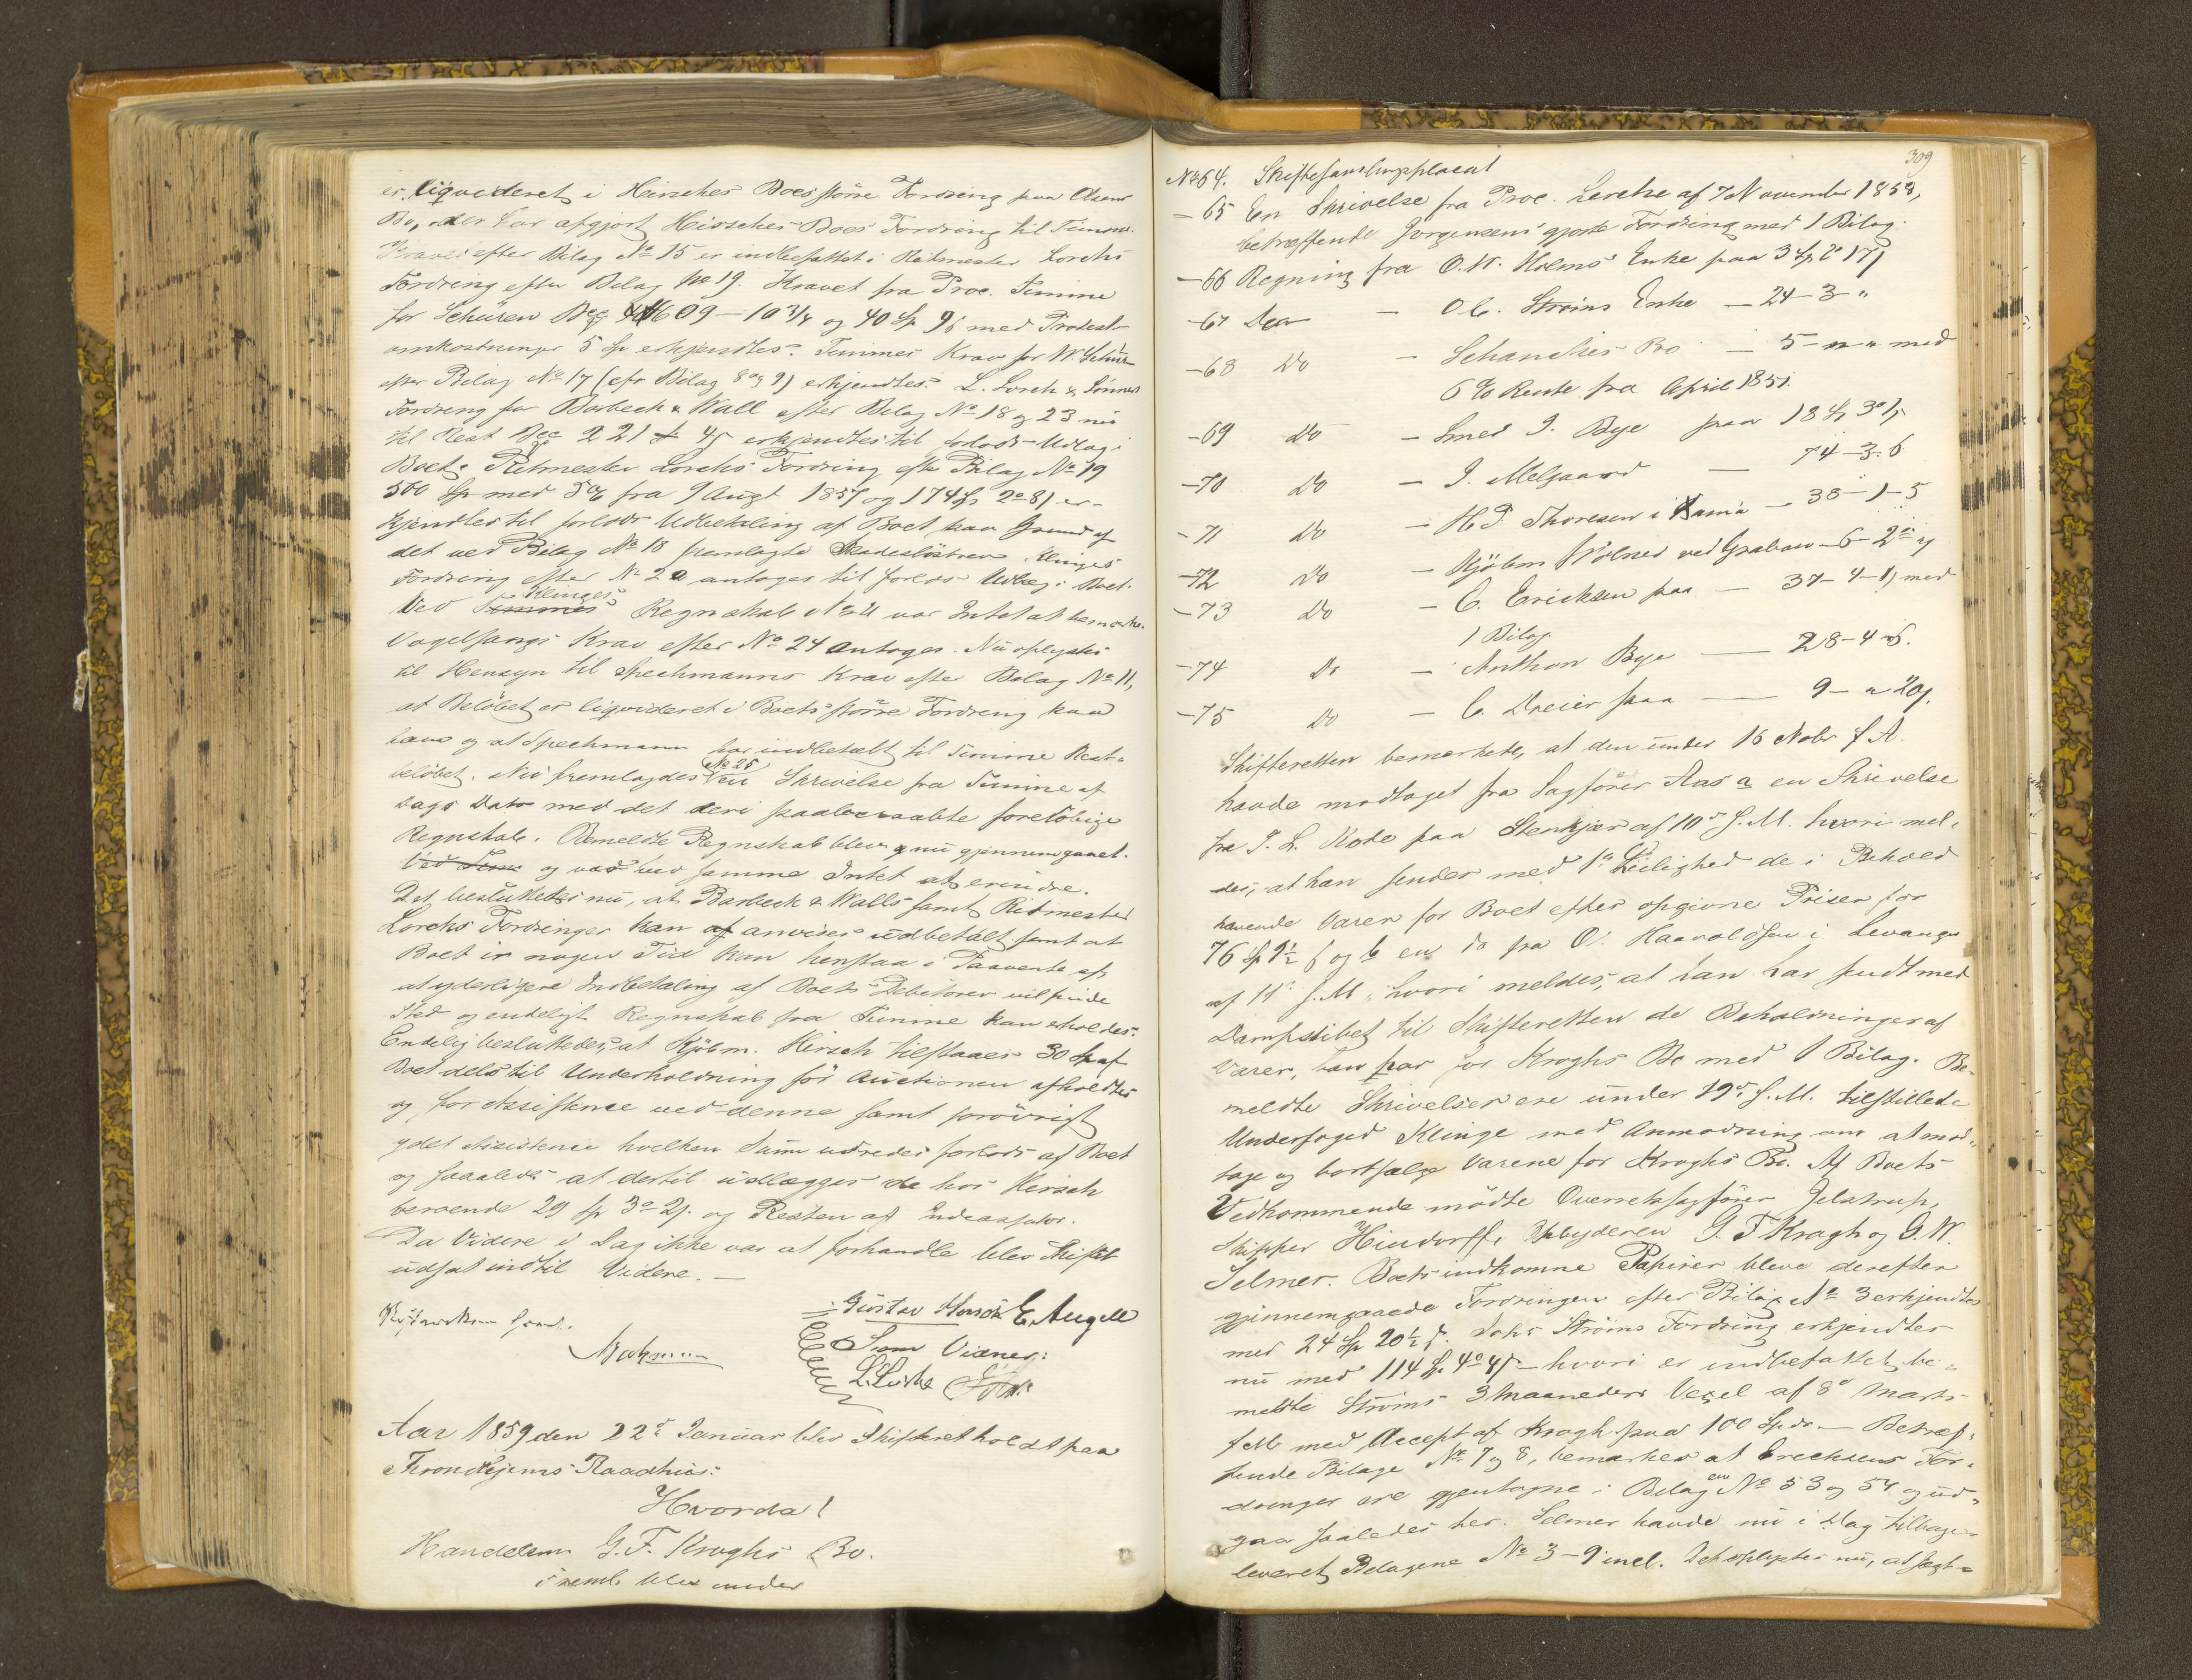 er liqvideret i Hirsches Boes større Fordring paa Olsens
Bo, der har afgjort Hirsches Boes Fordring til Timme.
Kravet efter Bilag No 15 er indbefattet i Ritmester Lorchs
Fordring efter Bilag No 19. Kravet fra Proc. Timme
for Schüren Bco 609 – 10 3/4 og 40 Sp 96 med Protest
omkostninger 5 Sp erkjendtes. Timmes Krav for W. Schüren
efter Bilag No 17 (cfr Bilag 8 og 9) erkjendtes. L. Lorch & Sönners
Fordring for Barbeck & Wall efter Bilag No 18 og 23 nu
til Rest Bco 221 erkjendtes til forlods Udlæg i
Boet. Ritmester Lorchs Fordring efter Bilag No 19
500 Sp med 5% fra 9 Augt 1857 og 174 Sp 2 o 8 er-
kjendtes til forlods Udbetaling af Boet paa Grund af
det ved Bilag No 18 fremlagte Klinges
Fordring efter No 20 antoges til forlods Udlæg i Boet.
Ved Klinges Regnskab No 21 var Intet at bemærke.
Vogelsangs Krav efter No 24 antoges. Nu oplystes
til Hensyn til Spechmanns Krav efter Bilag No 11,
at Beløbet er liqvideret i Boets større Fordring paa
ham og at Spechmann har indbetalt til Timme Rest-
beløbet. Nu fremlagdes No 25 en Skrivelse fra Timme af
Dags Dato med det deri paaberaabte foreløbige
Regnskab. Bemeldte Regnskab blev nu gjennemgaaet.
og var ved samme Intet at erindre.
Det besluttedes nu, at Barbeck & Walls samt Ritmester
Lorchs Fordringer kan anvises udbetalt samt at
Boet i nogen Tid kan henstaa i Paavente af
at yderligere Indbetaling af Boets Debitorer vil finde
Sted og endeligt Regnskab fra Timme kan erholdes.
Endelig besluttedes, at Kjöbm. Hirsch tilstaaes 30 Sp af
Boet dels til Underholdning før Auctionen afholdtes
og for Assistence ved denne samt forøvrigt
ydet Assistence hvilken Sum udredes forlods af Boet
og saaledes at dertil udlægges de hos Hirsch
beroende 29 Sp 3 o 2 s. og Resten af Indcassator.
Da Videre i Dag ikke var at forhandle blev Skiftet
udsat indtil Videre. –
Gustav Hirsch E. Angell
Som Vidner:
Aar 1859 den 22de Januar blev Skifteret holdt paa
Trondhjems Raadhus:
Hvorda!
Handelsm G. F. Kroghs Bo.
Fremk blev under
309
No 64. Skiftesamlingsplacat
– 65 En Skrivelse fra Proc. Lerche af 7 November 1858,
betræffende Jørgensens gjorte Fordring med 1 Bilag.
– 66 Regning fra O. W. Holms Enke paa 3 Sp 2 o 17
– 67 Do – O C. Strøms Enke – 24 – 3 – "
– 68 Do – Schanches Bo – 5 – " – " med
6 % Rente fra April 1851.
– 69 Do – Smed J. Bye paa 18 Sp 3 o 1
– 70 Do – J. Melgaard – 74 – 3 – 6
– 71 Do – H P Thoresen i – 38 – 1 – 5
– 72 Do – Kjöbm ved Grabow – 6 – 2 o
– 73 Do – C. Ericksen paa – 37 – 4 – 1 med
1 Bilag
– 74 Do – Anthon Bye – 28 – 4 – 5.
– 75 Do – C. Dreier paa – 9 – " 20
Skifteretten bemærkede, at den under 16 Nobr f. A.
havde modtaget fra Sagfører Aas a en Skrivelse
fra P. L. Rode paa Stenkjær af 10de s. M. hvori mel-
des, at han sender med 1ste Leilighed de i Behold
havende Varer for Boet efter opgivne Priser for
76 Sp og b en do fra O. Haavaldsen i Levanger
af 11te s. M. hvori meldes, at han har sendt med
Dampskibet til Skifteretten de Beholdninger af
Varer, han har for Kroghs Bo med 1 Bilag. Be-
meldte Skrivelser ere under 19de s. M. tilstillede
Underfoged Klinge med Anmodning om at mod-
tage og bortsælge Varene for Kroghs Bo. Af Boets
Vedkommende mødte Overretssagfører Jelstrup,
Skipper Hindorff, Opbyderen G. F Krogh og G. W.
Selmer. Boets indkomne Papirer bleve derefter
gjennemgaaede Fordringen efter Bilag No 3 erkjendtes
med 24 Sp 20 1/2 s. Johs Strøms Fordring erkjendtes
nu med 114 Sp 4 o 4 s – hvori er indbefattet be-
meldte Strøms 3 Maaneders Vexel af 8de Marts
med Accept af Krogh paa 100 Spdr. – Betræf-
fende Bilage No 7 og 8, bemærkes at Erecksens For-
dringer ere gjentagne i Bilagen No 53 og 54 og ud-
gaa saaledes her. Selmer havde nu i Dag tilbage-
leveret Bilagene No 3 – 9 incl. Det oplystes nu, at